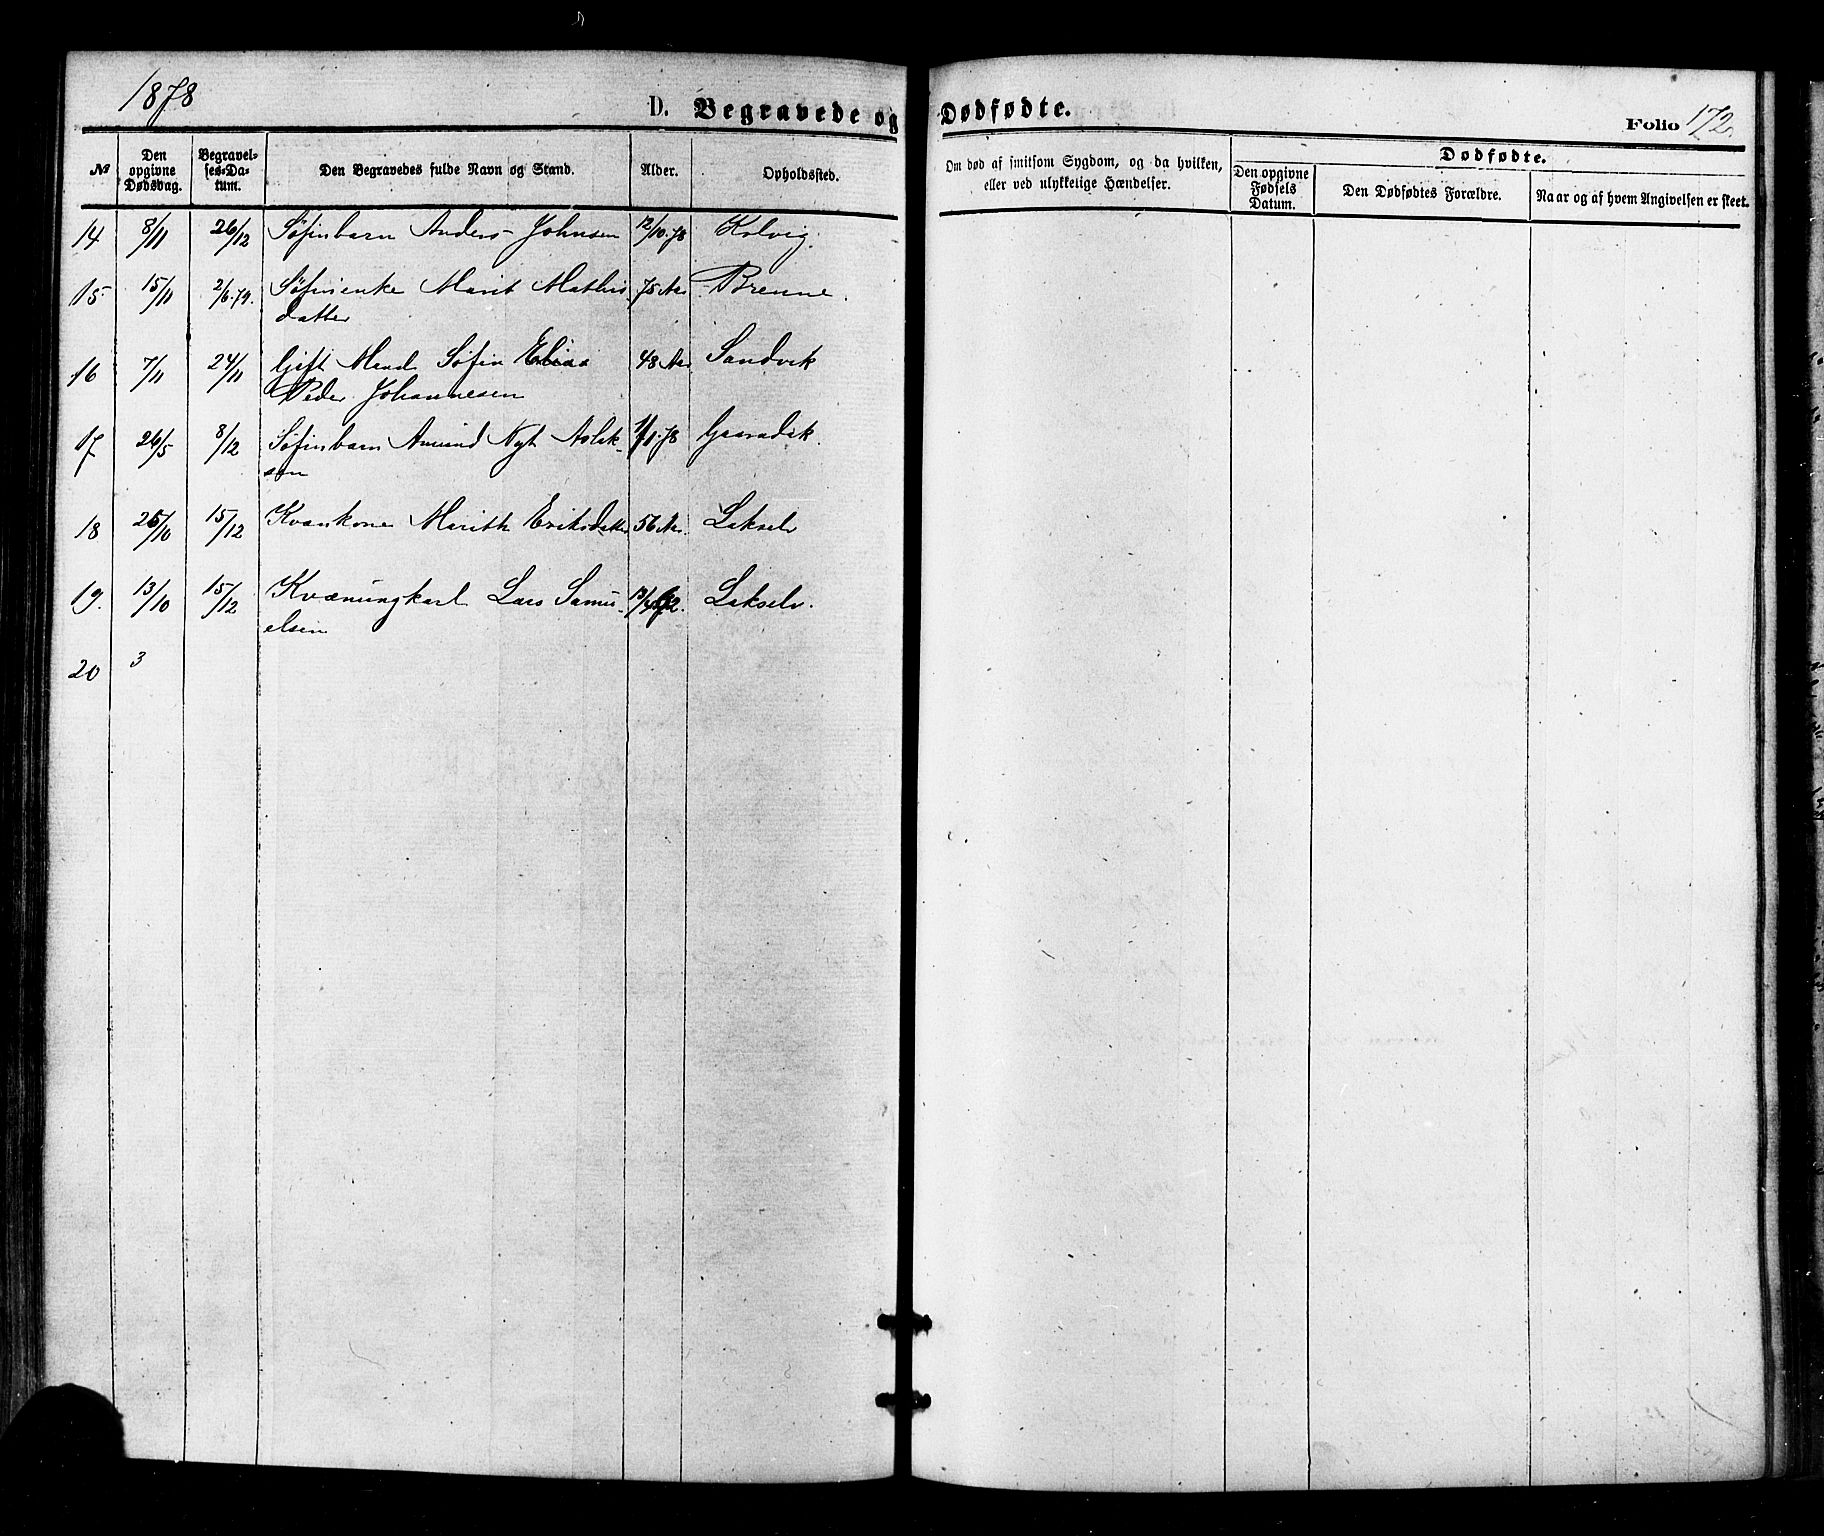 1878
D. Begravede og Dødfødte.
Folio 172.
№
Den opgivne Dødsdag.
Begravelses-Datum.
Den Begravedes fulde Navn og Stand.
Alder.
Opholdssted.
Om død af smitsom Sygdom, og da hvilken, eller ved ulykkelige Hændelser.
Dødfødte.
Den opgivne Fødsels Datum.
Den Dødfødtes Forældre.
Naar og af hvem Angivelsen er skeet.
14 8/11 26/12 Søfinbarn Anders Johnsen 12/10.78 Kolvig.
15 15/11 2/6.79. Søfinenke Marit Mathis 75 Aar Brenne.
datter
16 7/11 24/11 Gift Mand Søfin Elias 48 Aar Sandvik
Peder Johannesen
17 26/5 8/12 Søfinbarn Amund Nyt Aslak- 1/1.78
sen
18 25/10 15/12 Kvænkone Marith Eriksdatter 56 Aar. Lakselv
19. 13/10 15/12 Kvænungkarl Lars Samu- Lakselv.
elsen
20 3